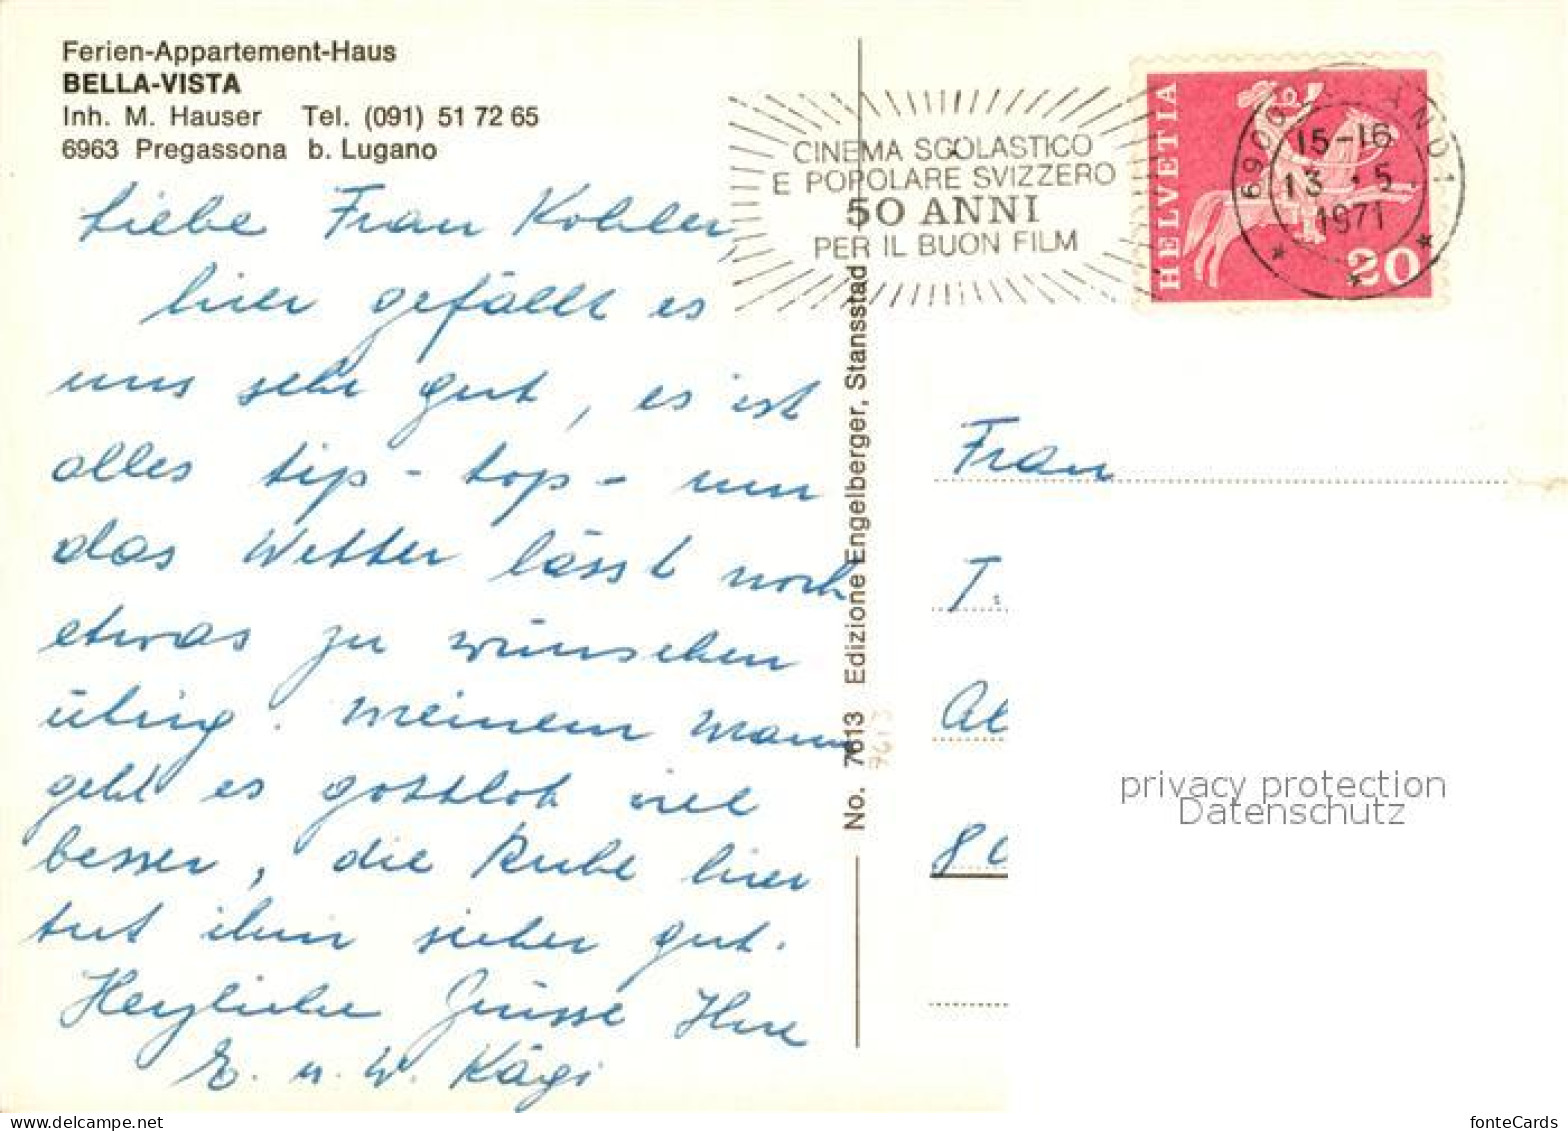 Ferien-Appartement-Haus
BELLA-VISTA
Inh. M. Hauser Tel. (091) 51 72 65
6963 Pregassona b. Lugano
Liebe Frau Kohler,
hier gefällt es
uns sehr gut, es ist
alles tip-top- nur
das Wetter lässt noch
etwas zu wünschen
übrig. Meinem Mann
geht es gottlob viel
besser, die Ruhe hier
tut ihm sicher gut.
Herzliche Grüsse Ihre
E. u. W. Kägi
No. 7613 Edizione Engelberger, Stansstad
7613
CINEMA SCOLASTICO
E POPOLARE SVIZZERO
50 ANNI
PER IL BUON FILM
HELVETIA
20
6900
15-16
13.-5
1971
Frau
T.
8
privacy protection
Datenschutz
fonteCards